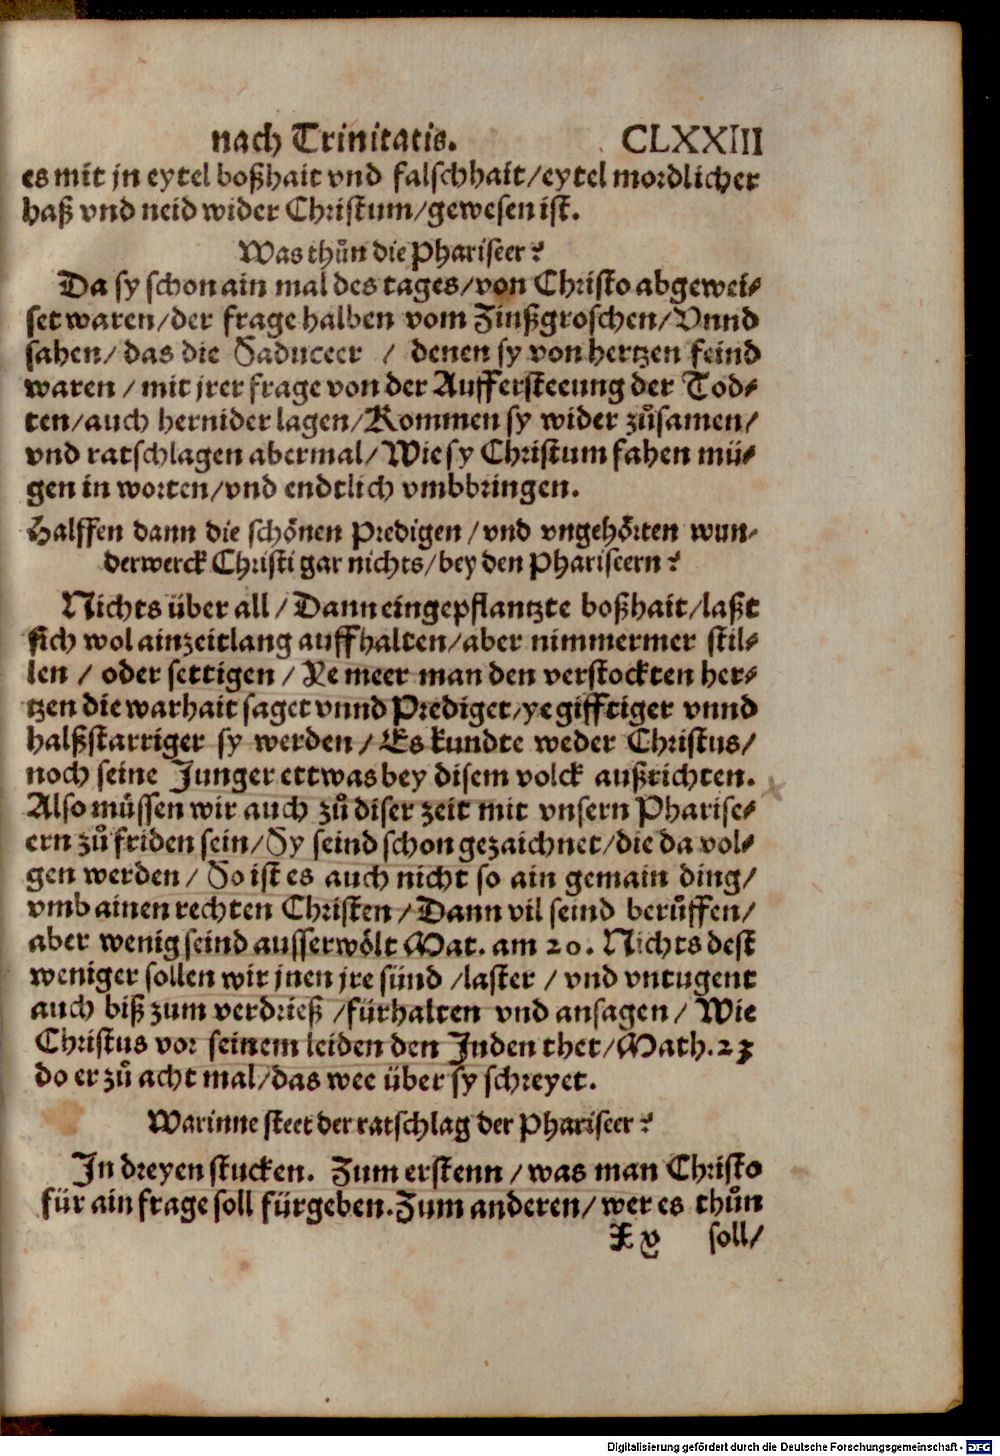 nach Trinitatis. CLXXIII
es mit jn eytel boßhait vnd falschhait/eytel mordlicher
haß vnd neid wider Christum/gewesen ist.
Was thůn die Phariseer?
Da sy schon ain mal des tages/von Christo abgewei-
set waren/der frage halben vom Zinßgroschen/Vnnd
sahen/das die Saduceer / denen sy von hertzen feind
waren / mit jrer frage von der Auffersteeung der Tod-
ten/auch hernider lagen/Kommen sy wider zůsamen/
vnd ratschlagen abermal/Wie sy Christum fahen mü-
gen in worten/vnd endtlich vmbbringen.
Halffen dann die schönen Predigen/vnd vngehörten wun-
derwerck Christi gar nichts/bey den Phariseern?
Nichts über all/Dann eingepflantzte boßhait/laßt
sich wol ain zeitlang auffhalten/aber nimmermer stil-
len / oder settigen / Ye meer man den verstockten her-
tzen die warhait saget vnnd Prediget/ye gifftiger vnnd
halßstarriger sy werden / Es kundte weder Christus/
noch seine Junger ettwas bey disem volck außrichten.
Also müssen wir auch zů diser zeit mit vnsern Pharise-
ern zů friden sein/Sy seind schon gezaichnet/die da vol-
gen werden / So ist es auch nicht so ain gemain ding/
vmb ainen rechten Christen/Dann vil seind berůffen/
aber wenig seind ausserwölt Mat. am 20. Nichts dest
weniger sollen wir jnen jre sünd /laster / vnd vntugent
auch biß zum verdrieß /fürhalten vnd ansagen/ Wie
Christus vor seinem leiden den Juden thet/Math.23
do er zů acht mal/das wee über sy schreyet.
Warinne steet der ratschlag der Phariseer?
In dreyen stucken. Zum erstenn /was man Christo
für ain frage soll fürgeben. Zum anderen/wer es thůn
X v soll/
Digitalisierung gefördert durch die Deutsche Forschungsgemeinschaft - DFG